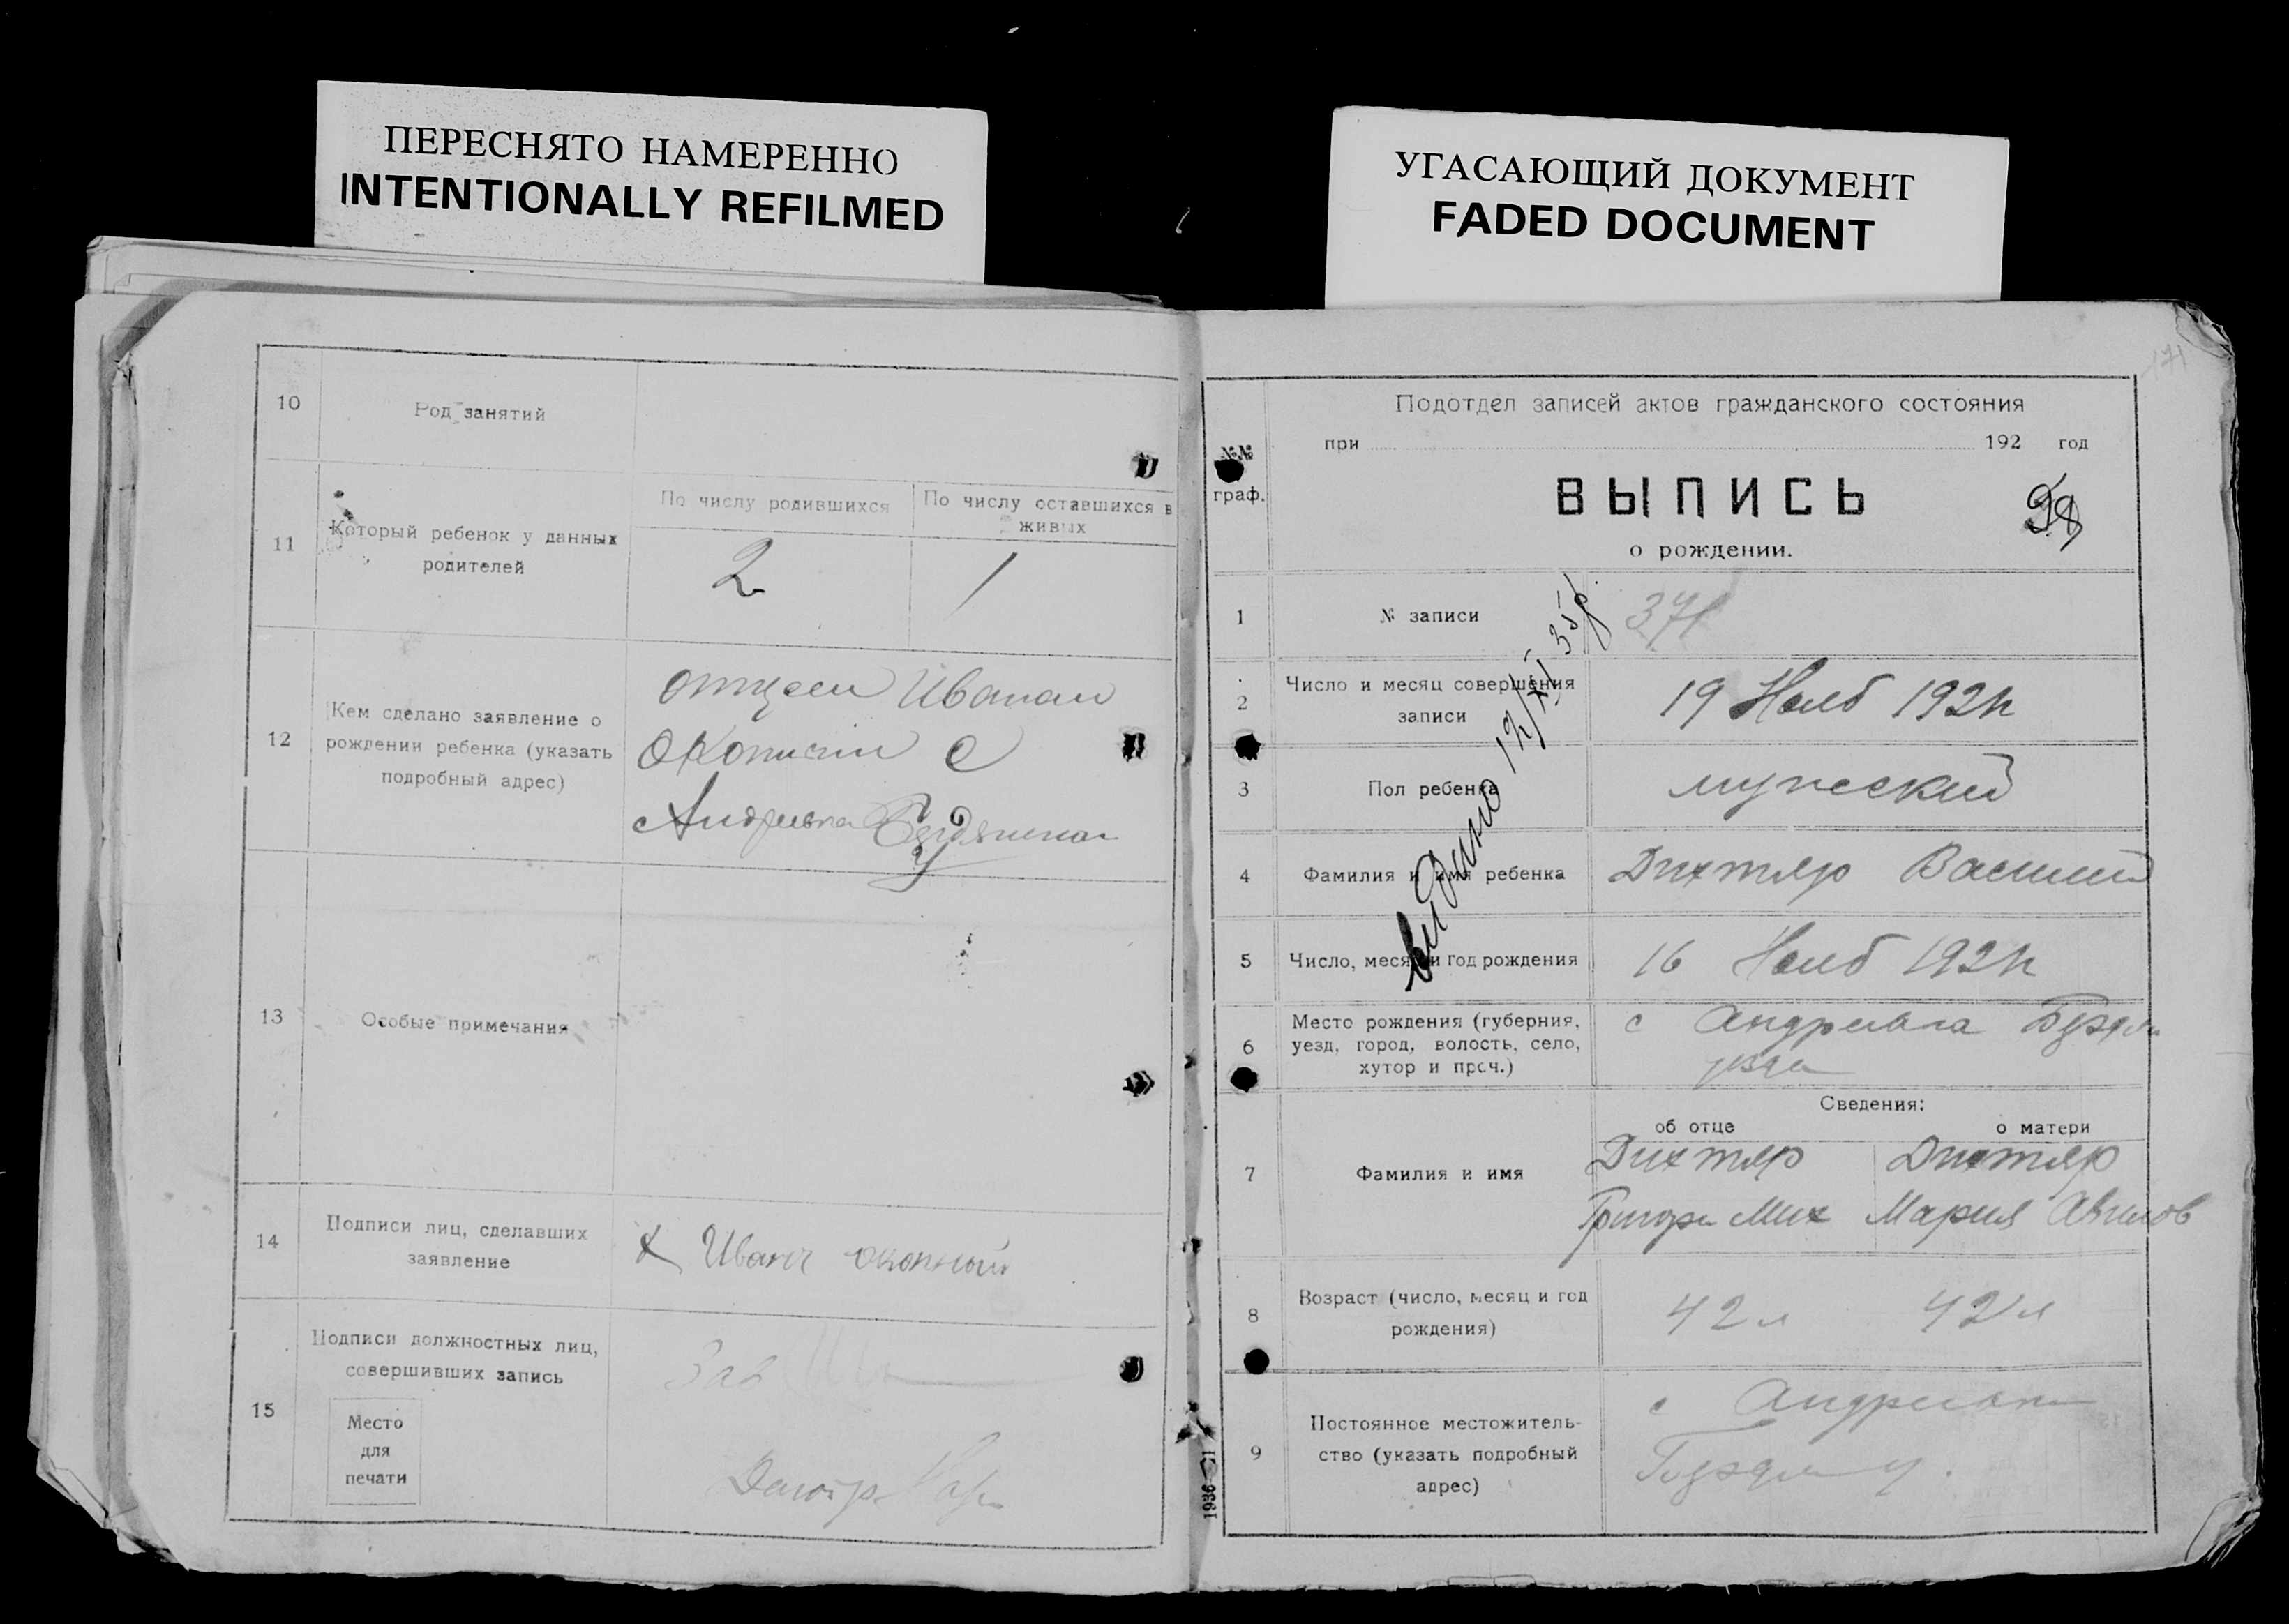 ПЕРЕСНЯТО НАМЕРЕННО
INTENTIONALLY REFILMED
УГАСАЮЩИЙ ДОКУМЕНТ
FADED DOCUMENT
10
Род занятий
11
Который ребенок у данных
родителей
По числу родившихся
По числу оставшихся в
живых
2
1
12
Кем сделано заявление о
рождении ребенка (указать
подробный адрес)
отцем Иваном
с
Андриевка
13
Особые примечания
14
Подписи лиц, сделавших
заявление
Иван окопный
15
Подписи должностных лиц,
совершивших запись
Место
для
печати
Зав
171
№№
граф.
Подотдел записей актов гражданского состояния
при 192 год
ВЫПИСЬ
о рождении.
1
№ записи
371
2
Число и месяц совершения
записи
19 Нояб 192
3
Пол ребенка
мужеский
4
Фамилия и имя ребенка
Дихтяр Василий
5
Число, месяц и год рождения
16 Нояб 192
6
Место рождения (губерния,
уезд, город, волость, село,
хутор и проч.)
с Андриевка
Сведения:
об отце
о матери
7
Фамилия и имя
Дихтяр
Григори Мих
Дихтяр
Мария
8
Возраст (число, месяц и год
рождения)
42 л
42 л
9
Постоянное местожитель-
ство (указать подробный
адрес)
с Андриевка
Видано 12/XI 35р
1936